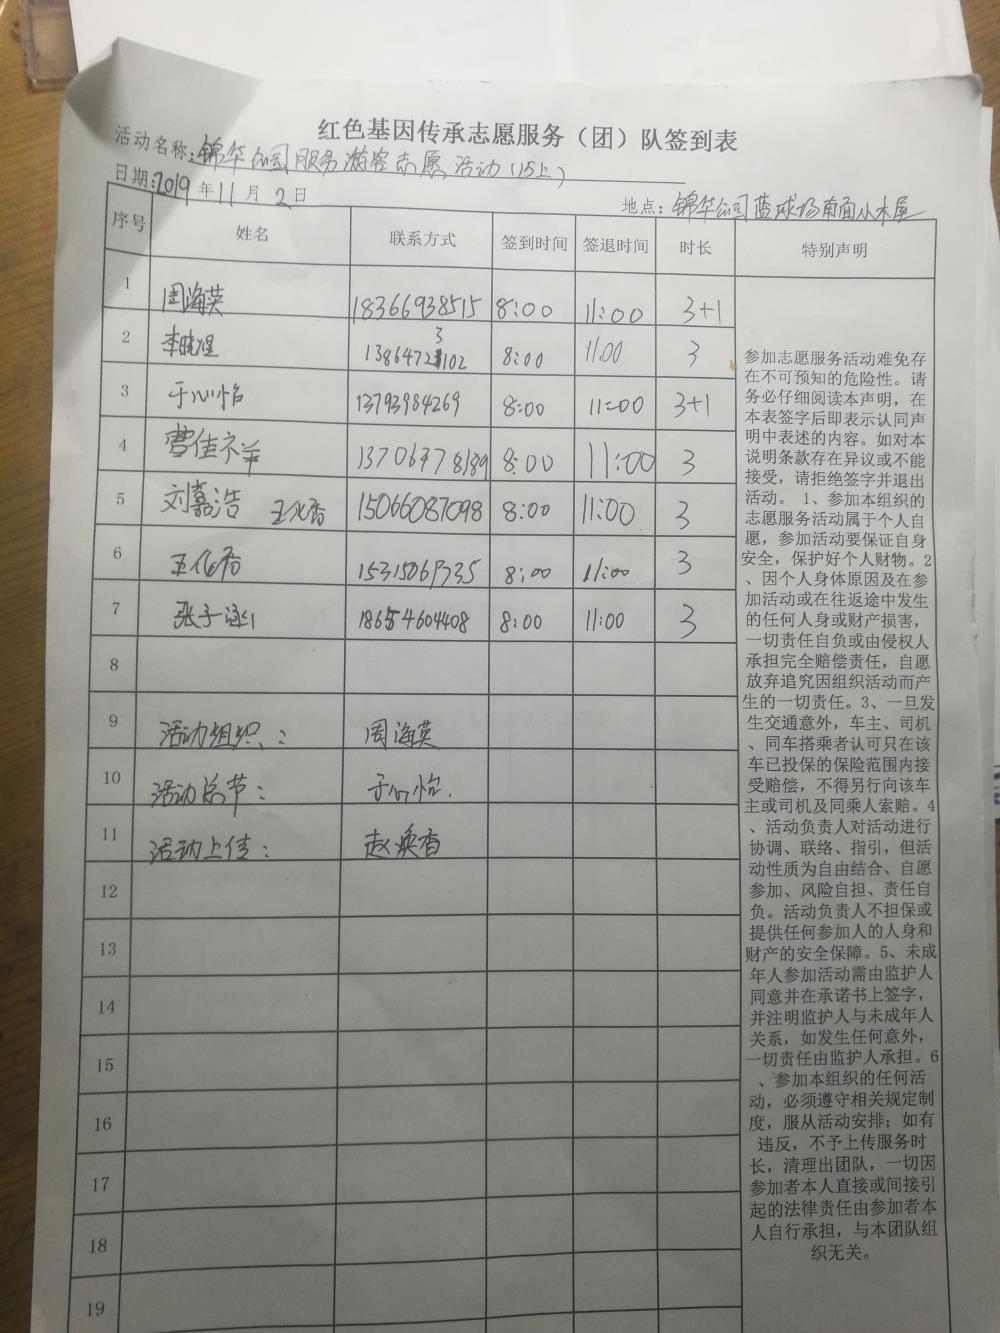 红色基因传承志愿服务（团）队签到表
活动名称：锦华公司服务游客志愿活动(15上)
日期：2019年11月2日
地点：锦华公司蓝球场南面小木屋
序号 姓名 联系方式 签到时间 签退时间 时长 特别声明
1 周海英 18366938515 8:00 11:00 3+1
2 李晓煜 8:00 11:00 3
3 于心怡 13793984269 8:00 11:00 3+1
4 曹佳 8:00 11:00 3
5 刘嘉浩 王化香 15066087098 8:00 11:00 3
6 王化香 8:00 11:00 3
7 张子涵 18654604408 8:00 11:00 3
8
9 活动组织：周海英
10 活动总节：于心怡.
11 活动上传：赵焕香
12
13
14
15
16
17
18
19
参加志愿服务活动难免存
在不可预知的危险性。请
务必仔细阅读本声明，在
本表签字后即表示认同声
明中表述的内容。如对本
说明条款存在异议或不能
接受，请拒绝签字并退出
活动。 1、参加本组织的
志愿服务活动属于个人自
愿，参加活动要保证自身
安全，保护好个人财物。2
、因个人身体原因及在参
加活动或在往返途中发生
的任何人身或财产损害，
一切责任自负或由侵权人
承担完全赔偿责任，自愿
放弃追究因组织活动而产
生的一切责任。3、一旦发
生交通意外，车主、司机
、同车搭乘者认可只在该
车已投保的保险范围内接
受赔偿，不得另行向该车
主或司机及同乘人索赔。4
、活动负责人对活动进行
协调、联络、指引，但活
动性质为自由结合、自愿
参加、风险自担、责任自
负。活动负责人不担保或
提供任何参加人的人身和
财产的安全保障。5、未成
年人参加活动需由监护人
同意并在承诺书上签字，
并注明监护人与未成年人
关系，如发生任何意外，
一切责任由监护人承担。6
、参加本组织的任何活
动，必须遵守相关规定制
度，服从活动安排；如有
违反，不予上传服务时
长，清理出团队，一切因
参加者本人直接或间接引
起的法律责任由参加者本
人自行承担，与本团队组
织无关。